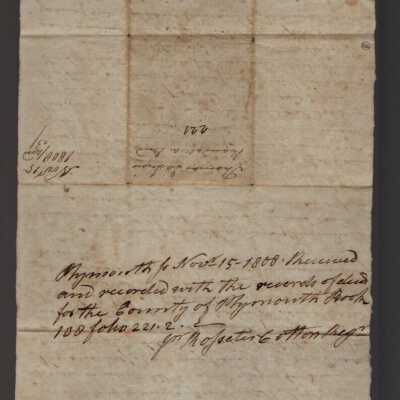 221
Novr 15
1808
Plymouth ss Novr 15-1808. Received
and recorded with the records of deeds
for the County of Plymouth Book
108 folio 221.2.
pr Rosseter Cotton Regr